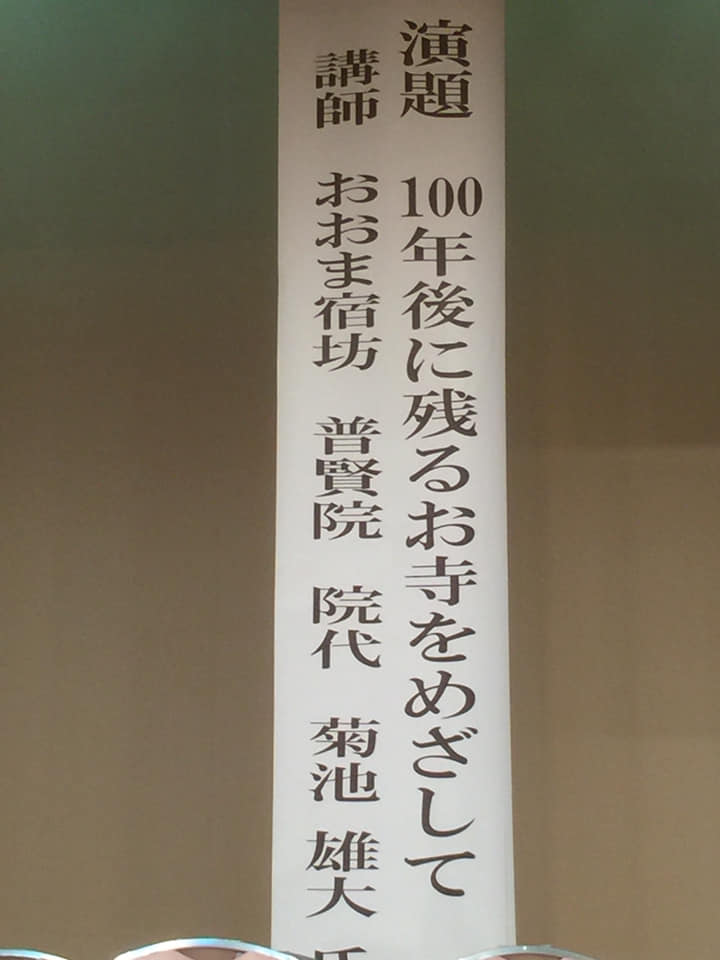 演題 100年後に残るお寺をめざして
講師 おおま宿坊 普賢院 院代 菊池 雄大 氏